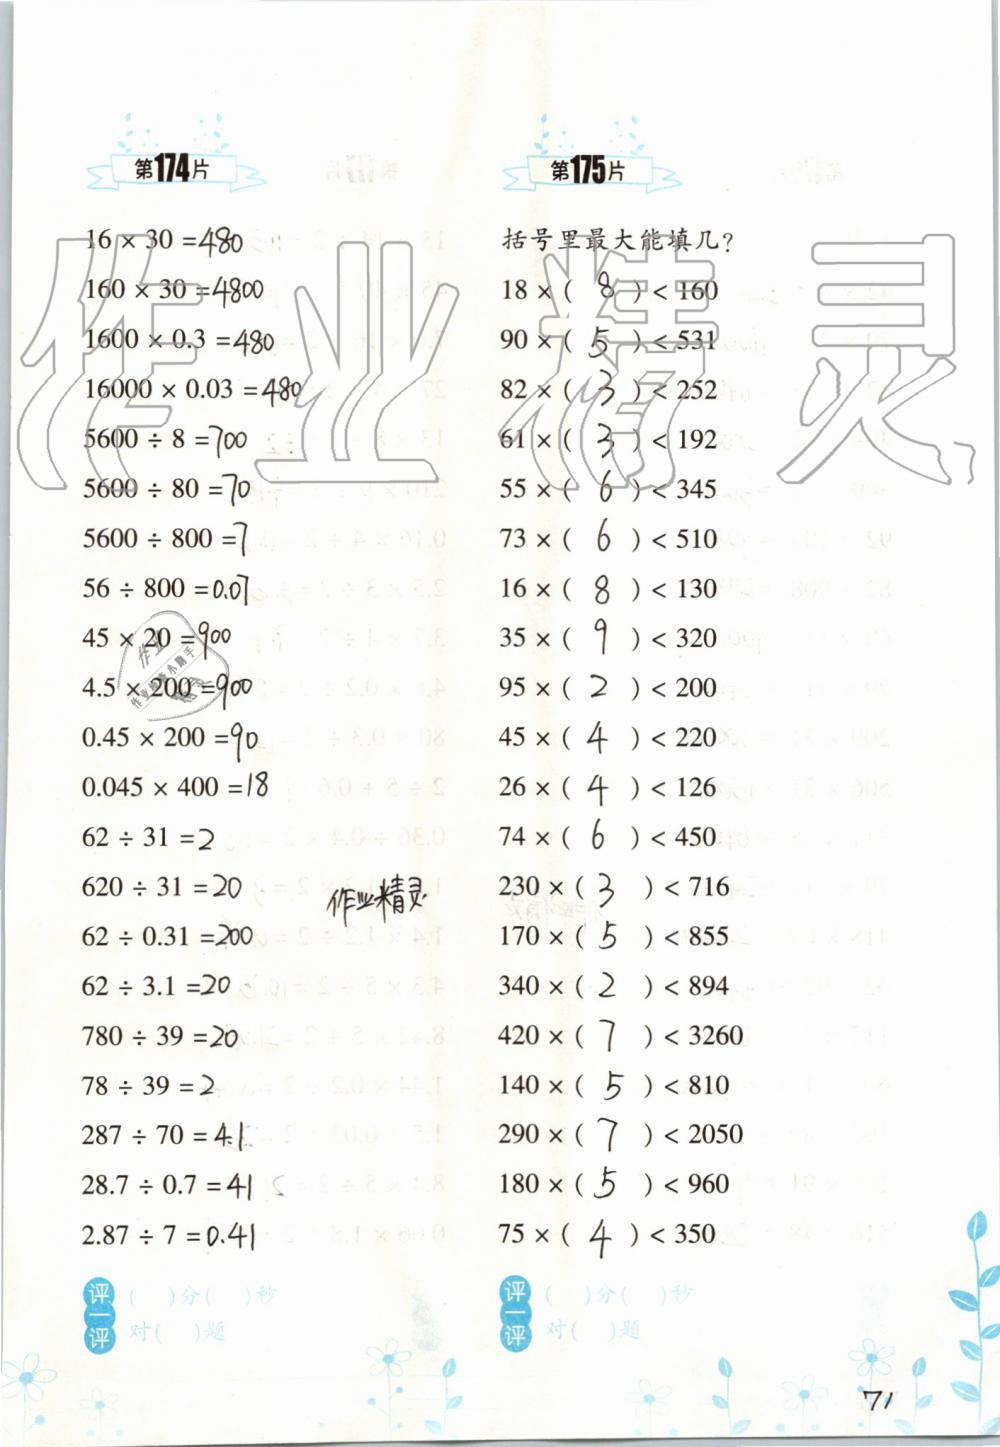 第174片
16 × 30 = 480
160 × 30 = 4800
1600 × 0.3 = 480
16000 × 0.03 = 480
5600 ÷ 8 = 700
5600 ÷ 80 = 70
5600 ÷ 800 = 7
56 ÷ 800 = 0.07
45 × 20 = 900
4.5 × 200 = 900
0.45 × 200 = 90
0.045 × 400 = 18
62 ÷ 31 = 2
620 ÷ 31 = 20
62 ÷ 0.31 = 200
62 ÷ 3.1 = 20
780 ÷ 39 = 20
78 ÷ 39 = 2
287 ÷ 70 = 4.1
28.7 ÷ 0.7 = 41
2.87 ÷ 7 = 0.41
评一评
( )分( )秒
对( )题
第175片
括号里最大能填几?
18 × ( 8 ) < 160
90 × ( 5 ) < 531
82 × ( 3 ) < 252
61 × ( 3 ) < 192
55 × ( 6 ) < 345
73 × ( 6 ) < 510
16 × ( 8 ) < 130
35 × ( 9 ) < 320
95 × ( 2 ) < 200
45 × ( 4 ) < 220
26 × ( 4 ) < 126
74 × ( 6 ) < 450
230 × ( 3 ) < 716
170 × ( 5 ) < 855
340 × ( 2 ) < 894
420 × ( 7 ) < 3260
140 × ( 5 ) < 810
290 × ( 7 ) < 2050
180 × ( 5 ) < 960
75 × ( 4 ) < 350
评一评
( )分( )秒
对( )题
作业精灵
作业精灵
71